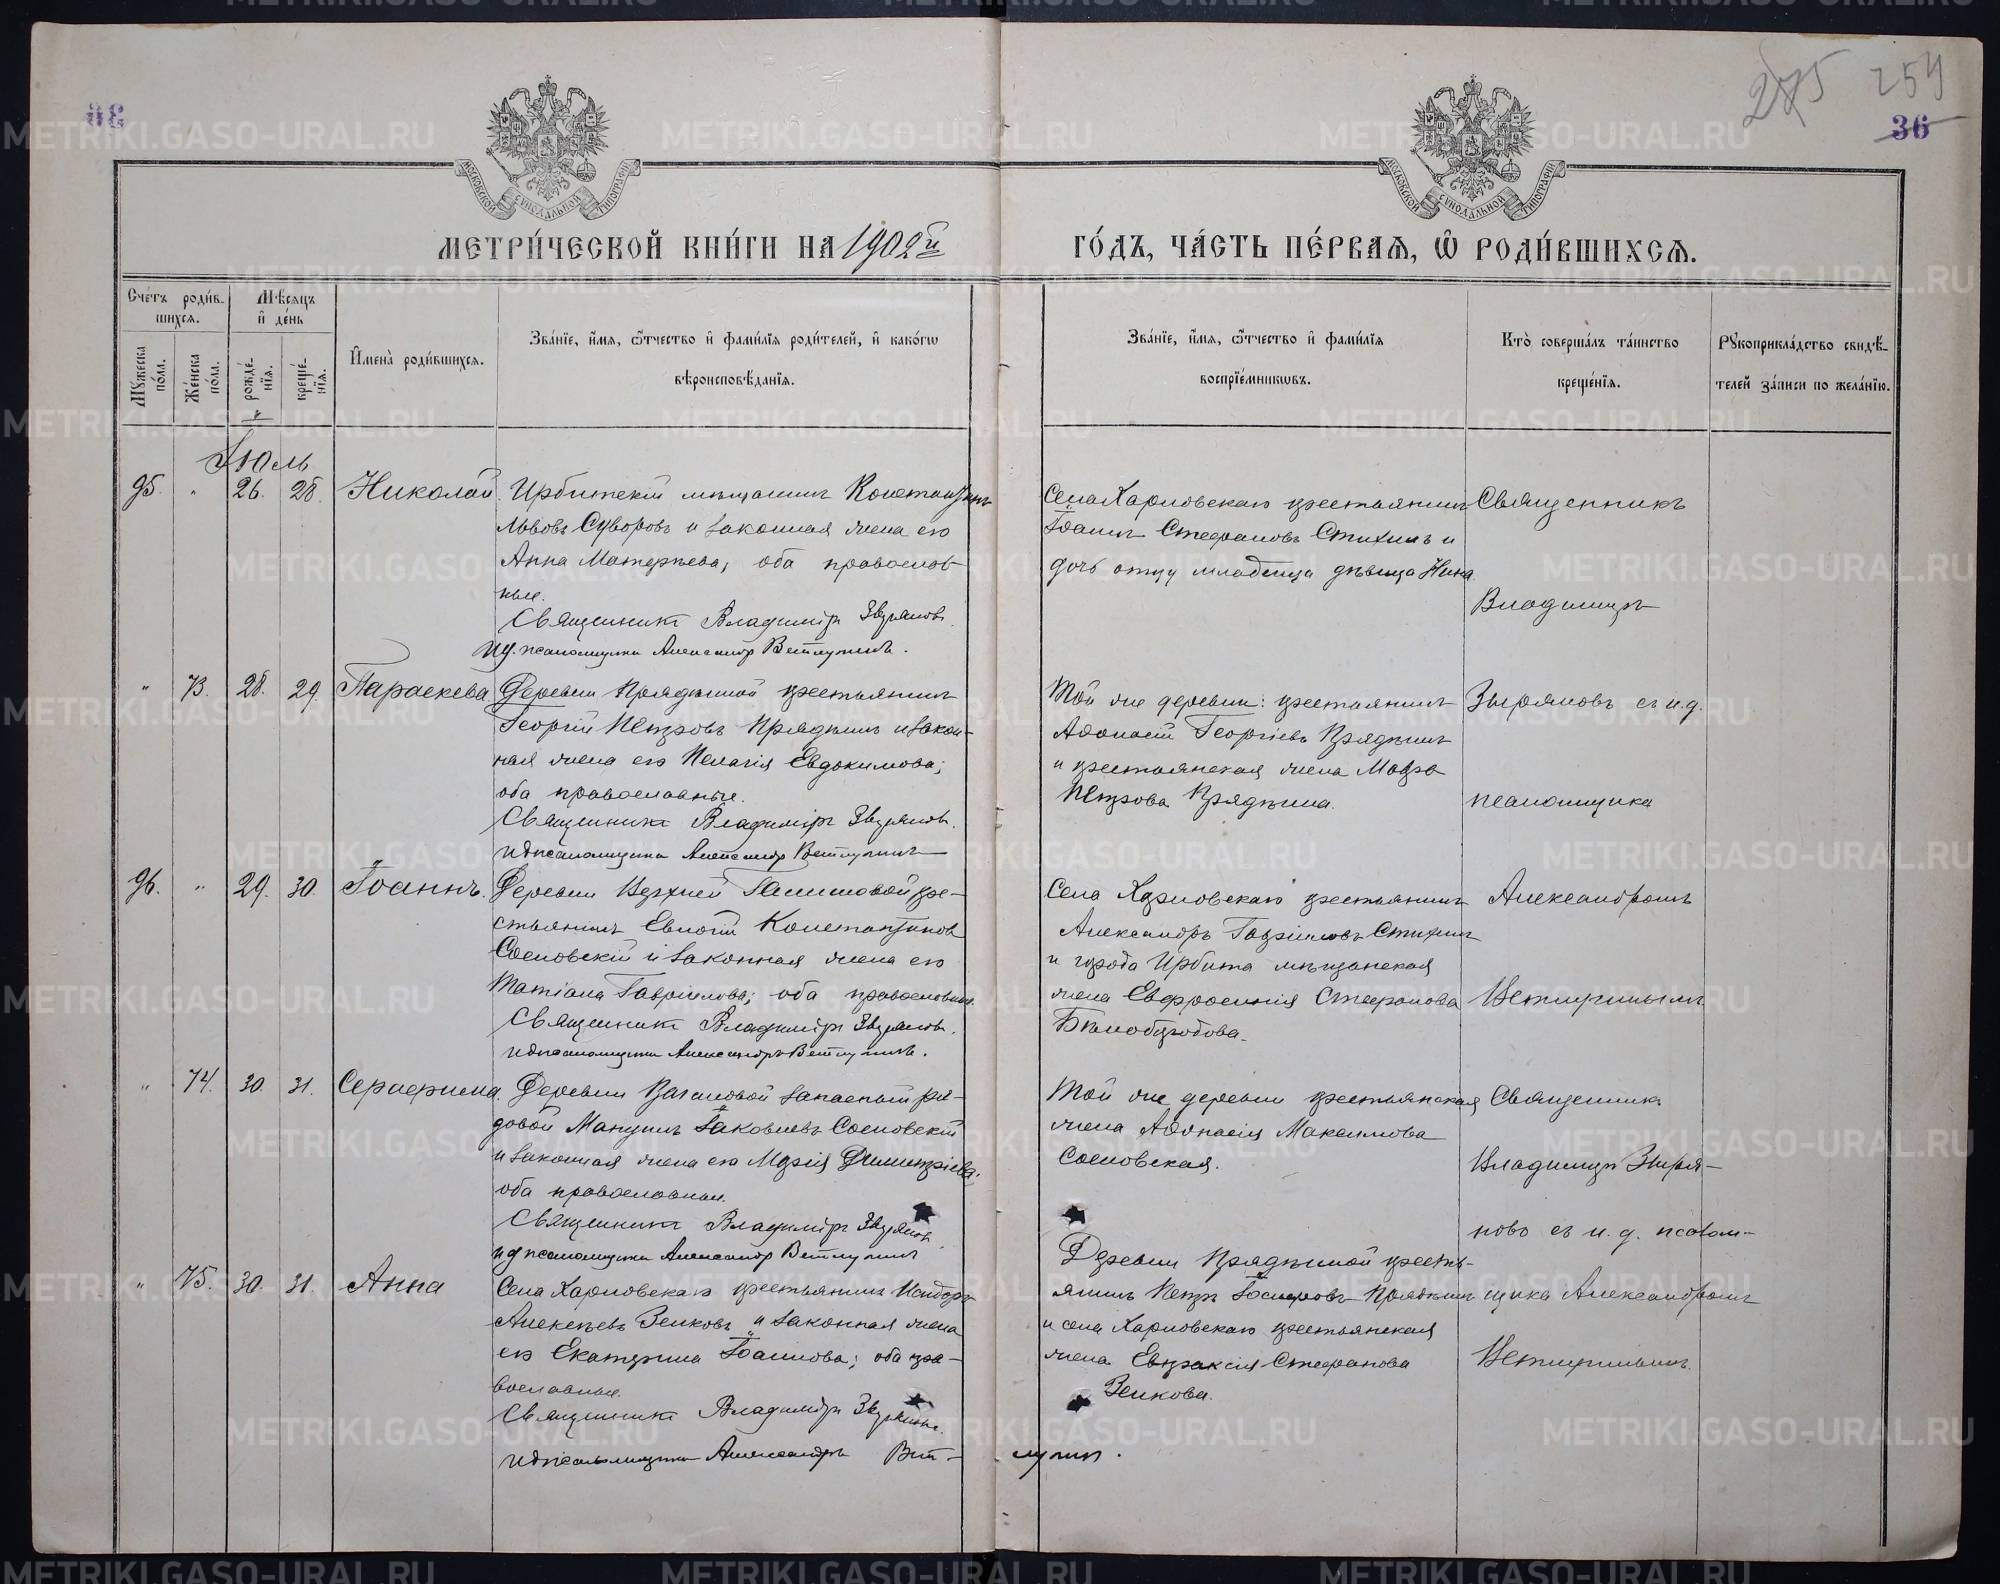 275 254
36
МОСКОВСКОЙ СѴНОДАЛЬНОЙ ТИПОГРАФІИ
МОСКОВСКОЙ СѴНОДАЛЬНОЙ ТИПОГРАФІИ
МЕТРИ́ЧЕСКОЙ КНИ́ГИ НА 1902й ГО́ДЪ, ЧА́СТЬ ПЕ́РВАѦ, Ѡ҆ РОДИ́ВШИХСѦ.
Сче́тъ роди́в-
шихсѧ.
Мѣ́сѧцъ
и҆ де́нь
Мꙋ́жеска
по́ла.
Же́нска
по́ла.
рожде́-
нїѧ.
креще́-
нїѧ.
И҆мена̀ роди́вшихсѧ.
Зва́нїе, и҆́мѧ, ѻ҆́тчество и҆ фамѝлїѧ роди́телей, и҆ како́гѡ
вѣроисповѣ́данїѧ.
Зва́нїе, и҆́мѧ, ѻ҆́тчество и҆ фамѝлїѧ
воспрїе́мникѡвъ.
Кто̀ соверша́лъ та́инство
креще́нїѧ.
Рꙋкоприкла́дство свидѣ́-
телей за́писи по жела́нїю.
Іюль
95. " 26. 28. Николай. Ирбитскій мѣщанинъ Константинъ
Львовъ Суворовъ и законная жена его
Анна Матѳеева; оба православ-
ные.
Священникъ Владиміръ Зыряновъ.
И.д. псаломщика Александръ Ветлугинъ.
Села Харловскаго крестьянинъ
Іоаннъ Стефановъ Стихинъ и
дочь отцу младенца дѣвица Нина.
Священникъ
Владиміръ
" 73. 28. 29. Параскева Деревни Прядѣиной крестьянинъ
Георгій Петровъ Прядѣинъ и закон-
ная жена его Пелагія Евдокимова;
оба православные.
Священникъ Владиміръ Зыряновъ.
И д псаломщика Александръ Ветлугинъ
Той же деревни: крестьянинъ
Аѳанасій Георгіевъ Прядѣинъ
и крестьянская жена Мавра
Петрова Прядѣина.
Зыряновъ съ и.д.
псаломщика
96. " 29. 30. Іоаннъ. Деревни Верхней кре-
стьянинъ Евлогій Константиновъ
Сосновскій и законная жена его
Татіана Гавріилова; оба православные.
Священникъ Владиміръ Зыряновъ.
И д псаломщика Александръ Ветлугинъ.
Села Харловскаго крестьянинъ
Александръ Гавріиловъ Стихинъ
и города Ирбита мѣщанская
жена Евфросинія Стефанова
Бѣлобородова.
Александромъ
Ветлугинымъ
" 74. 30. 31. Серафима. Деревни Вагановой запасный ря-
довой Мануилъ Іаковлевъ Сосновскій
и законная жена его Марія Димитріева;
оба православные.
Священникъ Владиміръ Зыряновъ.
И д псаломщика Александръ Ветлугинъ
Той же деревни крестьянская
жена Аѳанасія Максимова
Сосновская.
Священникъ
Владиміръ Зыря-
новъ съ и. д. псалом-
" 75. 30. 31. Анна Села Харловскаго крестьянинъ Исидоръ
Алексѣевъ Зенковъ и законная жена
его Екатерина Іоаннова; оба пра-
вославные.
Священникъ Владиміръ Зыряновъ.
И д псаломщика Александръ Вет- лугинъ.
Деревни Прядѣиной кресть-
янинъ Петръ Прядѣинъ
и села Харловскаго крестьянская
жена Евпраксія Стефанова
Зенкова.
щика Александромъ
Ветлугинымъ.
METRIKI.GASO-URAL.RU